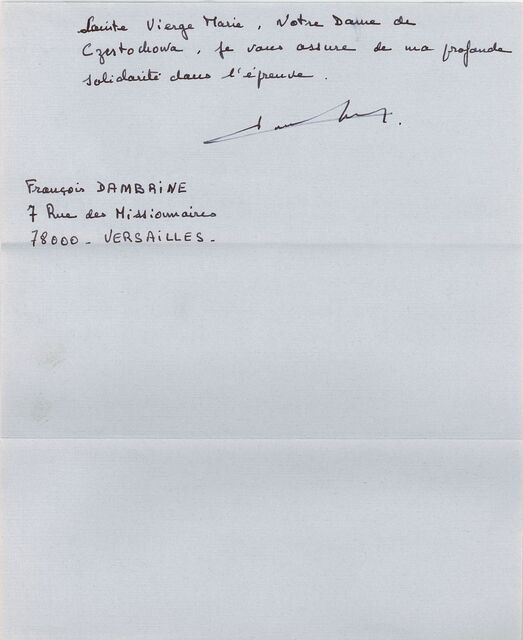 Sainte Vierge Marie, Notre Dame de
Czestochowa, je vous assure de ma profonde
solidarité dans l'épreuve.
François DAMBRINE
7 Rue des Missionnaires
78000 - VERSAILLES -